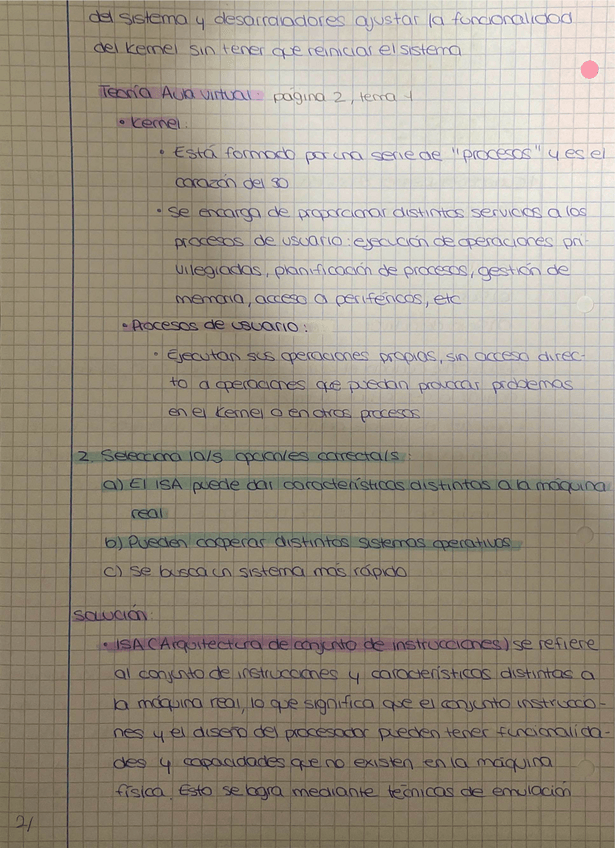 del sistema y desarrolladores ajustar la funcionalidad
del kernel sin tener que reiniciar el sistema
Teoría Aula virtual: página 2, tema 4
• Kernel:
• Está formado por una serie de "procesos" y es el
corazón del SO
• Se encarga de proporcionar distintos servicios a los
procesos de usuario: ejecución de operaciones pri-
vilegiadas, planificación de procesos, gestión de
memoria, acceso a periféricos, etc
• Procesos de usuario:
• Ejecutan sus operaciones propias, sin acceso direc-
to a operaciones que puedan provocar problemas
en el kernel o en otros procesos
2. Selecciona la/s opción/es correcta/s:
a) El ISA puede dar características distintas a la máquina
real
b) Pueden cooperar distintos sistemas operativos
c) Se busca un sistema más rápido
Solución:
• ISA (Arquitectura de conjunto de instrucciones) se refiere
al conjunto de instrucciones y características distintas a
la máquina real, lo que significa que el conjunto instruccio-
nes y el diseño del procesador pueden tener funcionalida-
des y capacidades que no existen en la máquina
física. Esto se logra mediante técnicas de emulación
2/